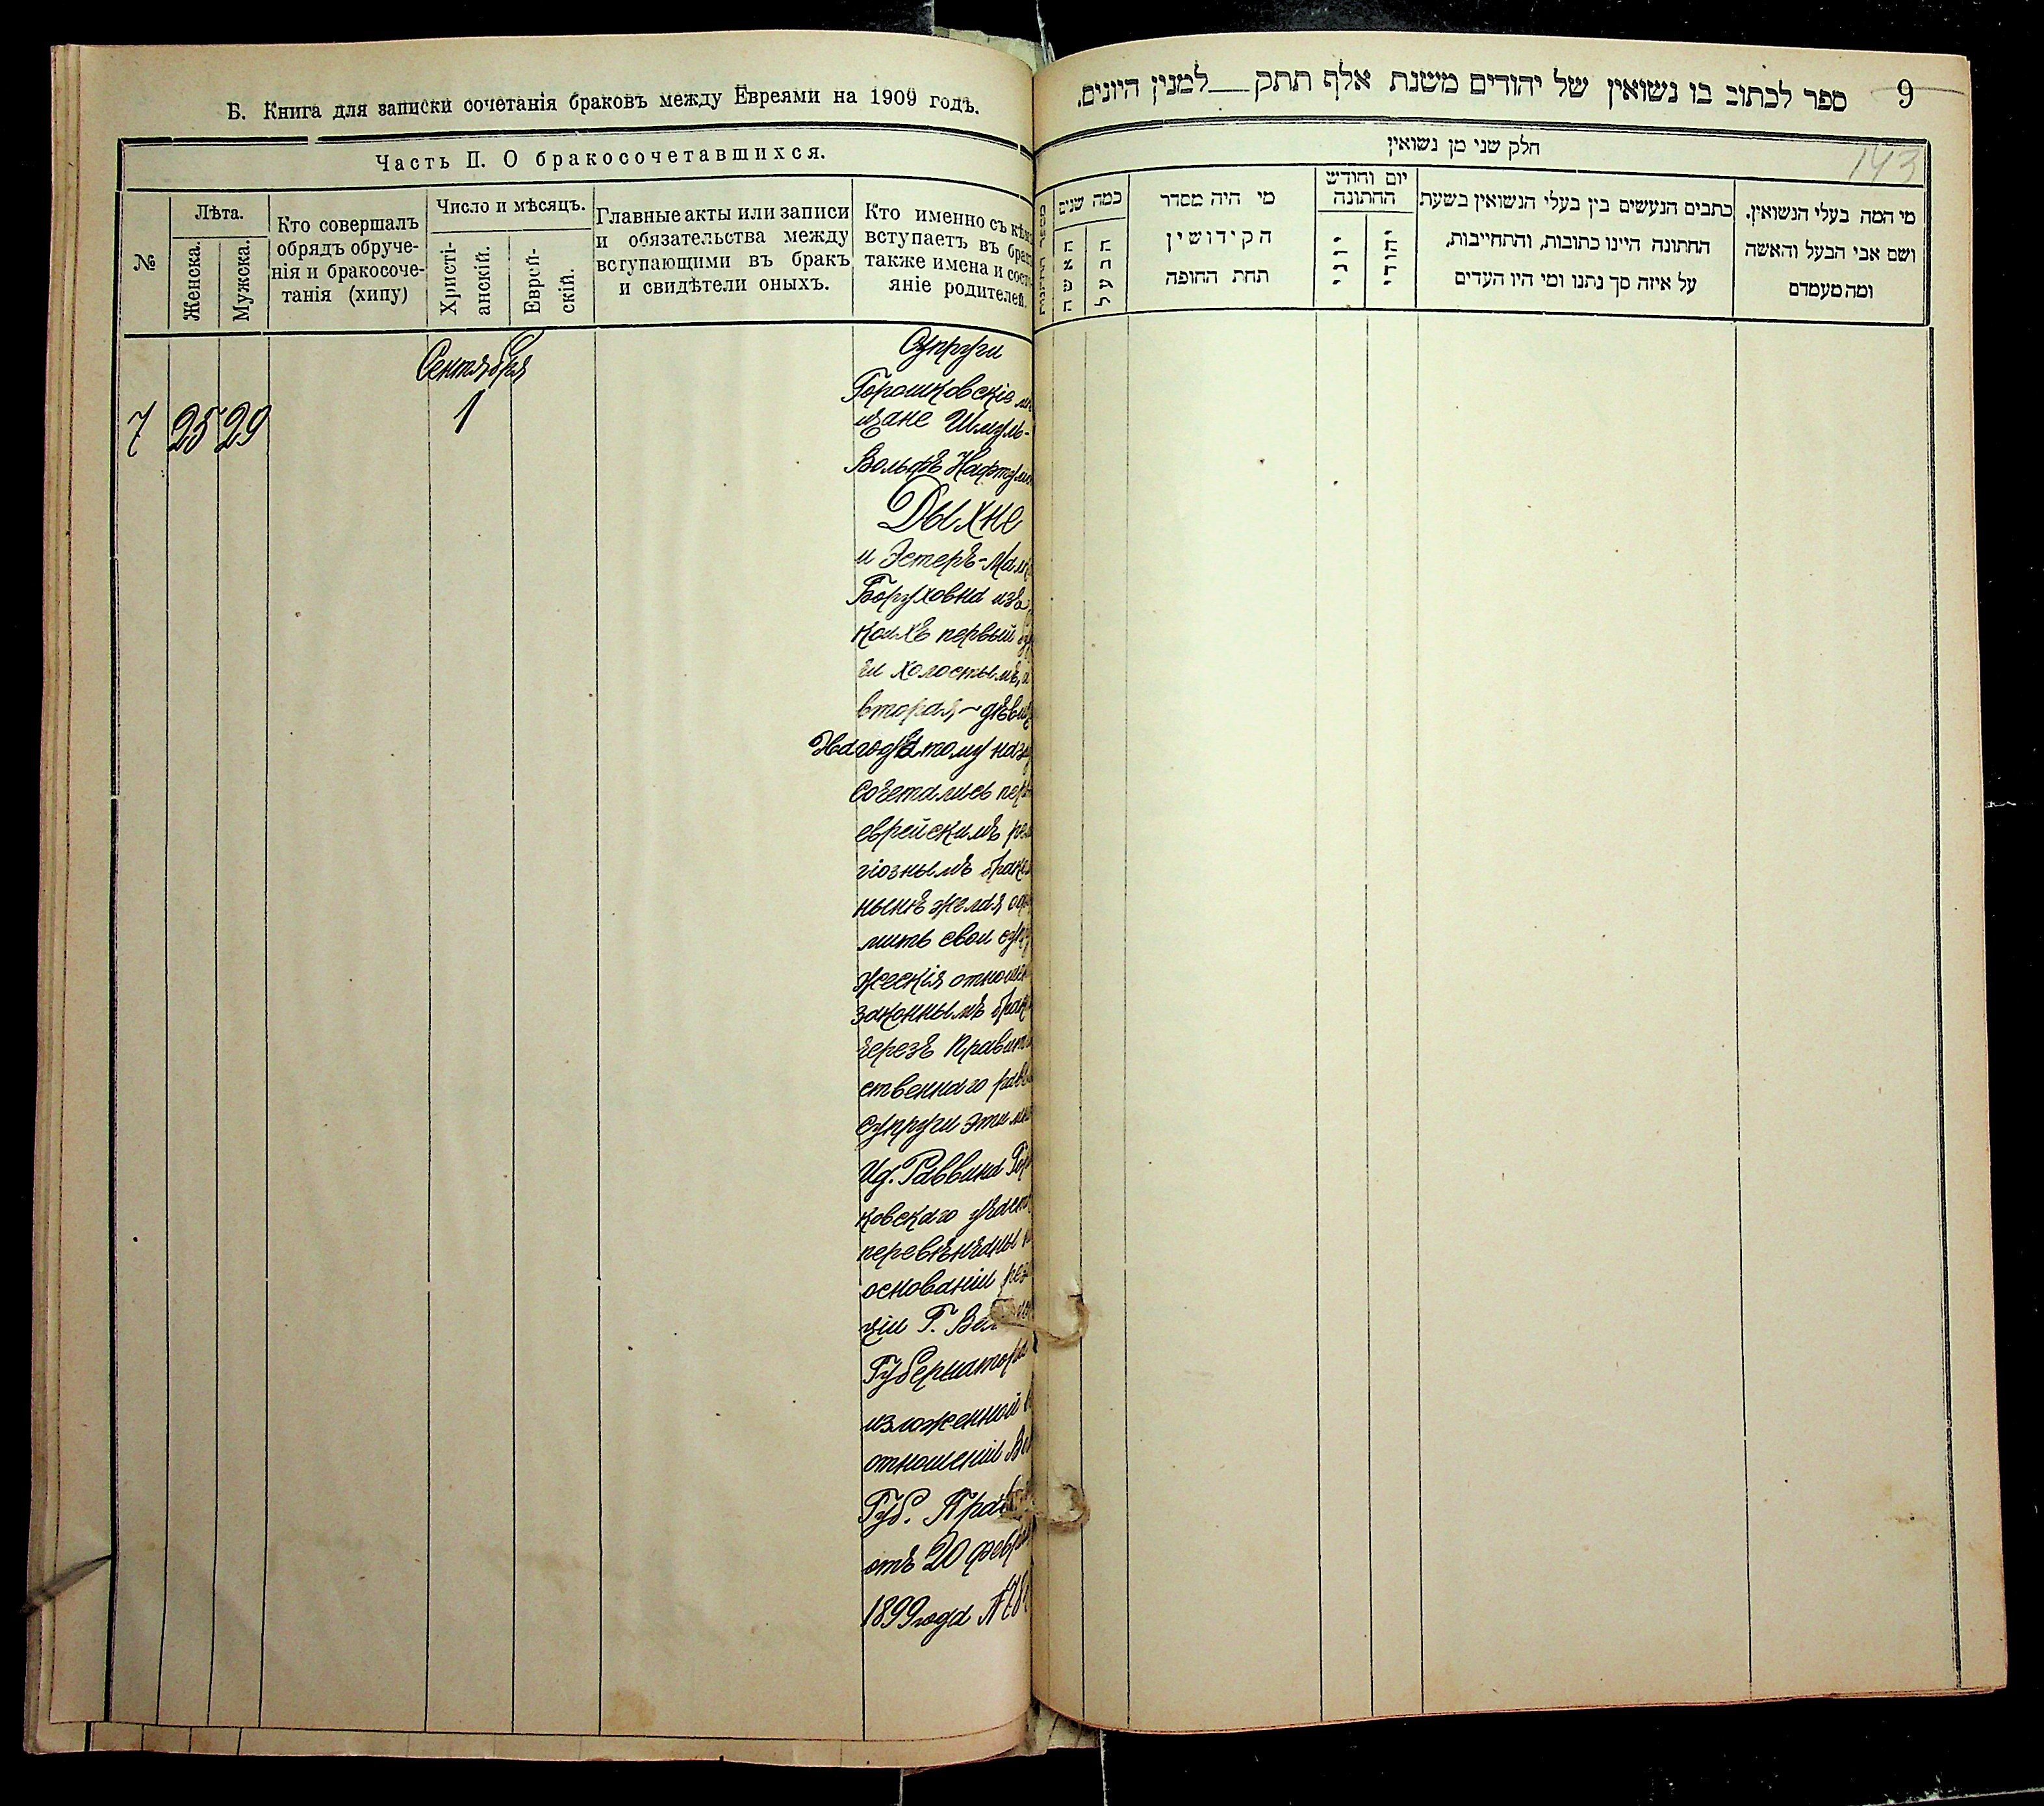 Б. Книга для записки сочетанія браковъ между Евреями на 1909 годъ.
Часть II. О бракосочетавшихся.
№
Лѣта.
Женска.
Мужска.
Кто совершалъ
обрядъ обруче-
нія и бракосоче-
танія (хипу)
Число и мѣсяцъ.
Христі-
анскій.
Еврей-
скій.
Главные акты или записи
и обязательства между
вступающими въ бракъ
и свидѣтели оныхъ.
Кто именно съ кѣмъ
вступаетъ въ бракъ
также имена и сост-
яніе родителей.
Сентября
7 25 29 1
Супруги
Горошковскіе мѣ
щане Шмуль-
Вольфъ Нафтулов
Дыхне
и Эстеръ-Мал
Боруховна изъ
коихъ первый
ги холостымъ, а
вторая – дѣвиц
На годъ тому наза
сочетались пер
еврейскимъ рел
гіознымъ браком
нынѣ желая офо
мить свои супру
жескія отношен
законнымъ брако
черезъ Правител
ственнаго равви
супруги эти мн
Ид. Раввина Гор
ковскаго участк
перевѣнчаны н
основаніи резо
ціи Г. Вол
Губернатора
изложенной въ
отношеніи Вол
Губ. Прав
отъ 20 февра
1899 года №
ספר לכתוב בו נשואין של יהודים משנת אלף תתק__למנין היונים.
9
143
חלק שני מן נשואין
מספר החתונות
כמה שנים
האשה
הבעל
מי היה מסדר
הקידושין
תחת החופה
יום וחודש
החתונה
יוני
יהודי
כתבים הנעשים בין בעלי הנשואין בשעת
החתונה היינו כתובות, והתחייבות,
על איזה סך נתנו ומי היו העדים
מי המה בעלי הנשואין.
ושם אבי הבעל והאשה
ומה מעמדם